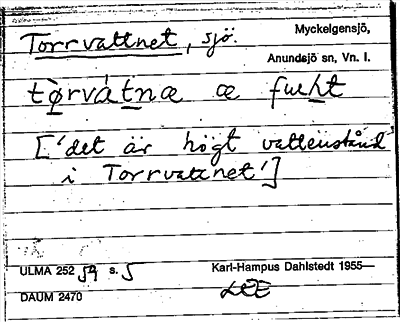 Torrvattnet, sjö. Myckelgensjö,
Anundsjö sn, Vn. I.
tø̀rvátnæ æ fueht
['det är högt vattenstånd
i Torrvattnet']
ULMA 252 59 s. 5 Karl-Hampus Dahlstedt 1955—
DAUM 2470